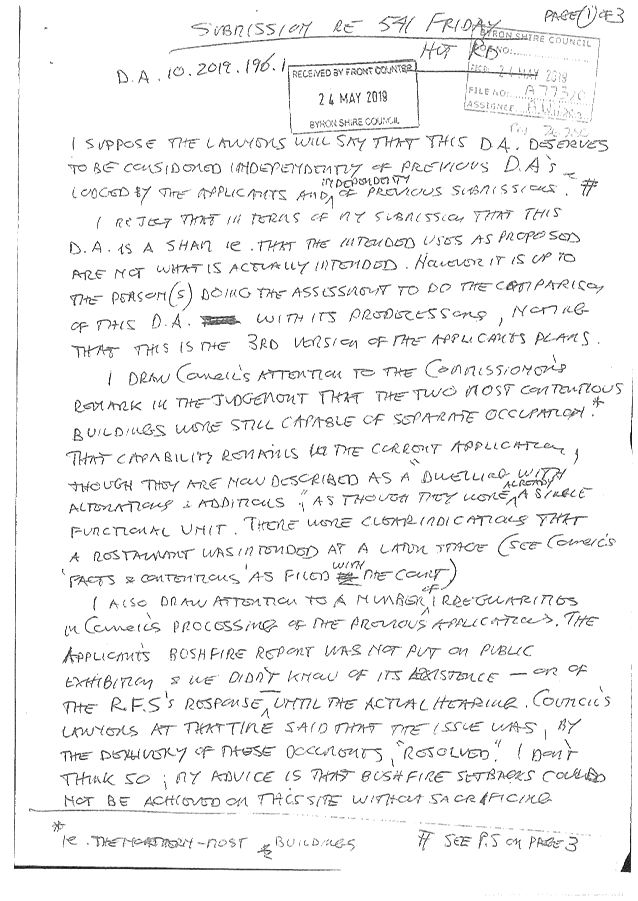 PAGE (1) OF 3
SUBMISSION RE 541 FRIDAY
HUT RD
D.A. 10.2019.196.1
RECEIVED BY FRONT COUNTER
24 MAY 2019
BYRON SHIRE COUNCIL
BYRON SHIRE COUNCIL
DOC NO:
RECD 24 MAY 2019
FILE NO: A77320
ASSIGNEE
I SUPPOSE THE LAWYERS WILL SAY THAT THIS D.A. DESERVES
TO BE CONSIDERED INDEPENDENTLY OF PREVIOUS D.A's
LODGED BY THE APPLICANTS AND INDEPENDENTLY OF PREVIOUS SUBMISSIONS. #
I REJECT THAT IN TERMS OF MY SUBMISSION THAT THIS
D.A. IS A SHAM IE. THAT THE INTENDED USES AS PROPOSED
ARE NOT WHAT IS ACTUALLY INTENDED. HOWEVER IT IS UP TO
THE PERSON(S) DOING THE ASSESSMENT TO DO THE COMPARISON
OF THIS D.A. WITH ITS PREDECESSORS, NOTING
THAT THIS IS THE 3RD VERSION OF THE APPLICANTS PLANS.
I DRAW COUNCIL'S ATTENTION TO THE COMMISSIONER'S
REMARK IN THE JUDGEMENT THAT THE TWO MOST CONTENTIOUS
BUILDINGS WERE STILL CAPABLE OF SEPARATE OCCUPATION.*
THAT CAPABILITY REMAINS IN THE CURRENT APPLICATION,
THOUGH THEY ARE NOW DESCRIBED AS A "DWELLING WITH
ALTERATIONS & ADDITIONS", AS THOUGH THEY WERE ALREADY A SINGLE
FUNCTIONAL UNIT. THERE WERE CLEAR INDICATIONS THAT
A RESTAURANT WAS INTENDED AT A LATER STAGE (SEE COUNCIL'S
'FACTS & CONTENTIONS' AS FILED WITH THE COURT)
I ALSO DRAW ATTENTION TO A NUMBER OF IRREGULARITIES
IN COUNCIL'S PROCESSING OF THE PREVIOUS APPLICATIONS. THE
APPLICANT'S BUSHFIRE REPORT WAS NOT PUT ON PUBLIC
EXHIBITION & WE DIDN'T KNOW OF ITS EXISTENCE — OR OF
THE R.F.S's RESPONSE — UNTIL THE ACTUAL HEARING. COUNCIL'S
LAWYERS AT THAT TIME SAID THAT THE ISSUE WAS, BY
THE DELIVERY OF THESE DOCUMENTS, "RESOLVED." I DON'T
THINK SO; MY ADVICE IS THAT BUSHFIRE SETBACKS COULD
NOT BE ACHIEVED ON THIS SITE WITHOUT SACRIFICING
* IE. THE NORTHERN-MOST BUILDINGS
# SEE P.S ON PAGE 3